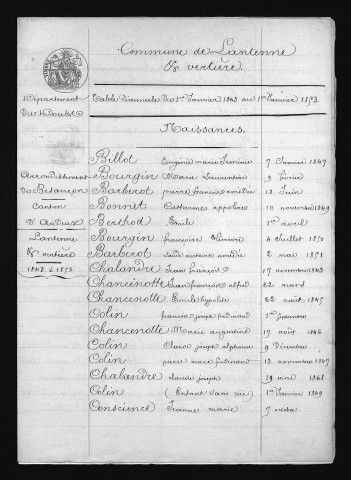 Commune de Lantenne
& vertière.
Département
du Doubs
Table décennale du 1er Janvier 1843 au 1er Janvier 1853.
Naissances.
Billot Eugénie marie 7 Janvier 1847
Arrondissement Bourgin Marie Laurentine 9 février
De Besançon Barberot pierre françois amédée 18 Juin
Canton Bonnet 10 novembre 1849
D'Audeux Berthod Emile 1er avril
Lantenne Bourgin françoise 4 Juillet 1850
& vertière Barberot antoine amédée 2 mai 1851
1843 à 1853. Chalandre françois 17 novembre 1843
Chancenotte françois alfred 22 mars
Chancenotte Emile hypolite 22 août 1845
Colin francois joseph ferdinand 1er
Chancenotte Marie augustine 17 août 1846
Colin joseph alphonse 9 Décembre
Colin pierre marc ferdinand 13 novembre 1847
Chalandre claude joseph 29 mai 1848
Colin (Enfant sans vie) 1er Janvier 1849
Conscience Jeanne marie 7 octobre